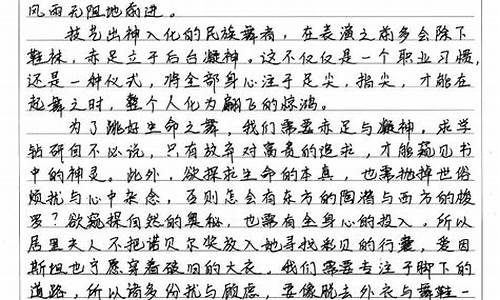 风雨无阻地前进。
技艺出神入化的民族舞者，在表演之前多会除下
鞋袜，赤足立于后台凝神。这不仅仅是一个职业习惯，
还是一种仪式，将全部身心注于足尖，指尖，才能在
起舞之时，整个人化为翩飞的惊鸿。
为了跳好生命之舞，我们需要赤足与凝神。求学
钻研自不必说，只有放弃对高贵的追求，才能窥见书
中的神灵。此外，欲探求生命的本真，也需抛掉世俗
烦扰与心中杂念，否则怎会有东方的陶潜与西方的梭
罗？欲窥探自然的奥秘，也需有全身心的投入。所以
居里夫人不把诺贝尔奖放入她寻找彩贝的行囊，爱因
斯坦也宁愿穿着破旧的大衣。我们需要专注于脚下的
道路，所以诸多纷扰与顾虑，要像脱去外衣与舞鞋一